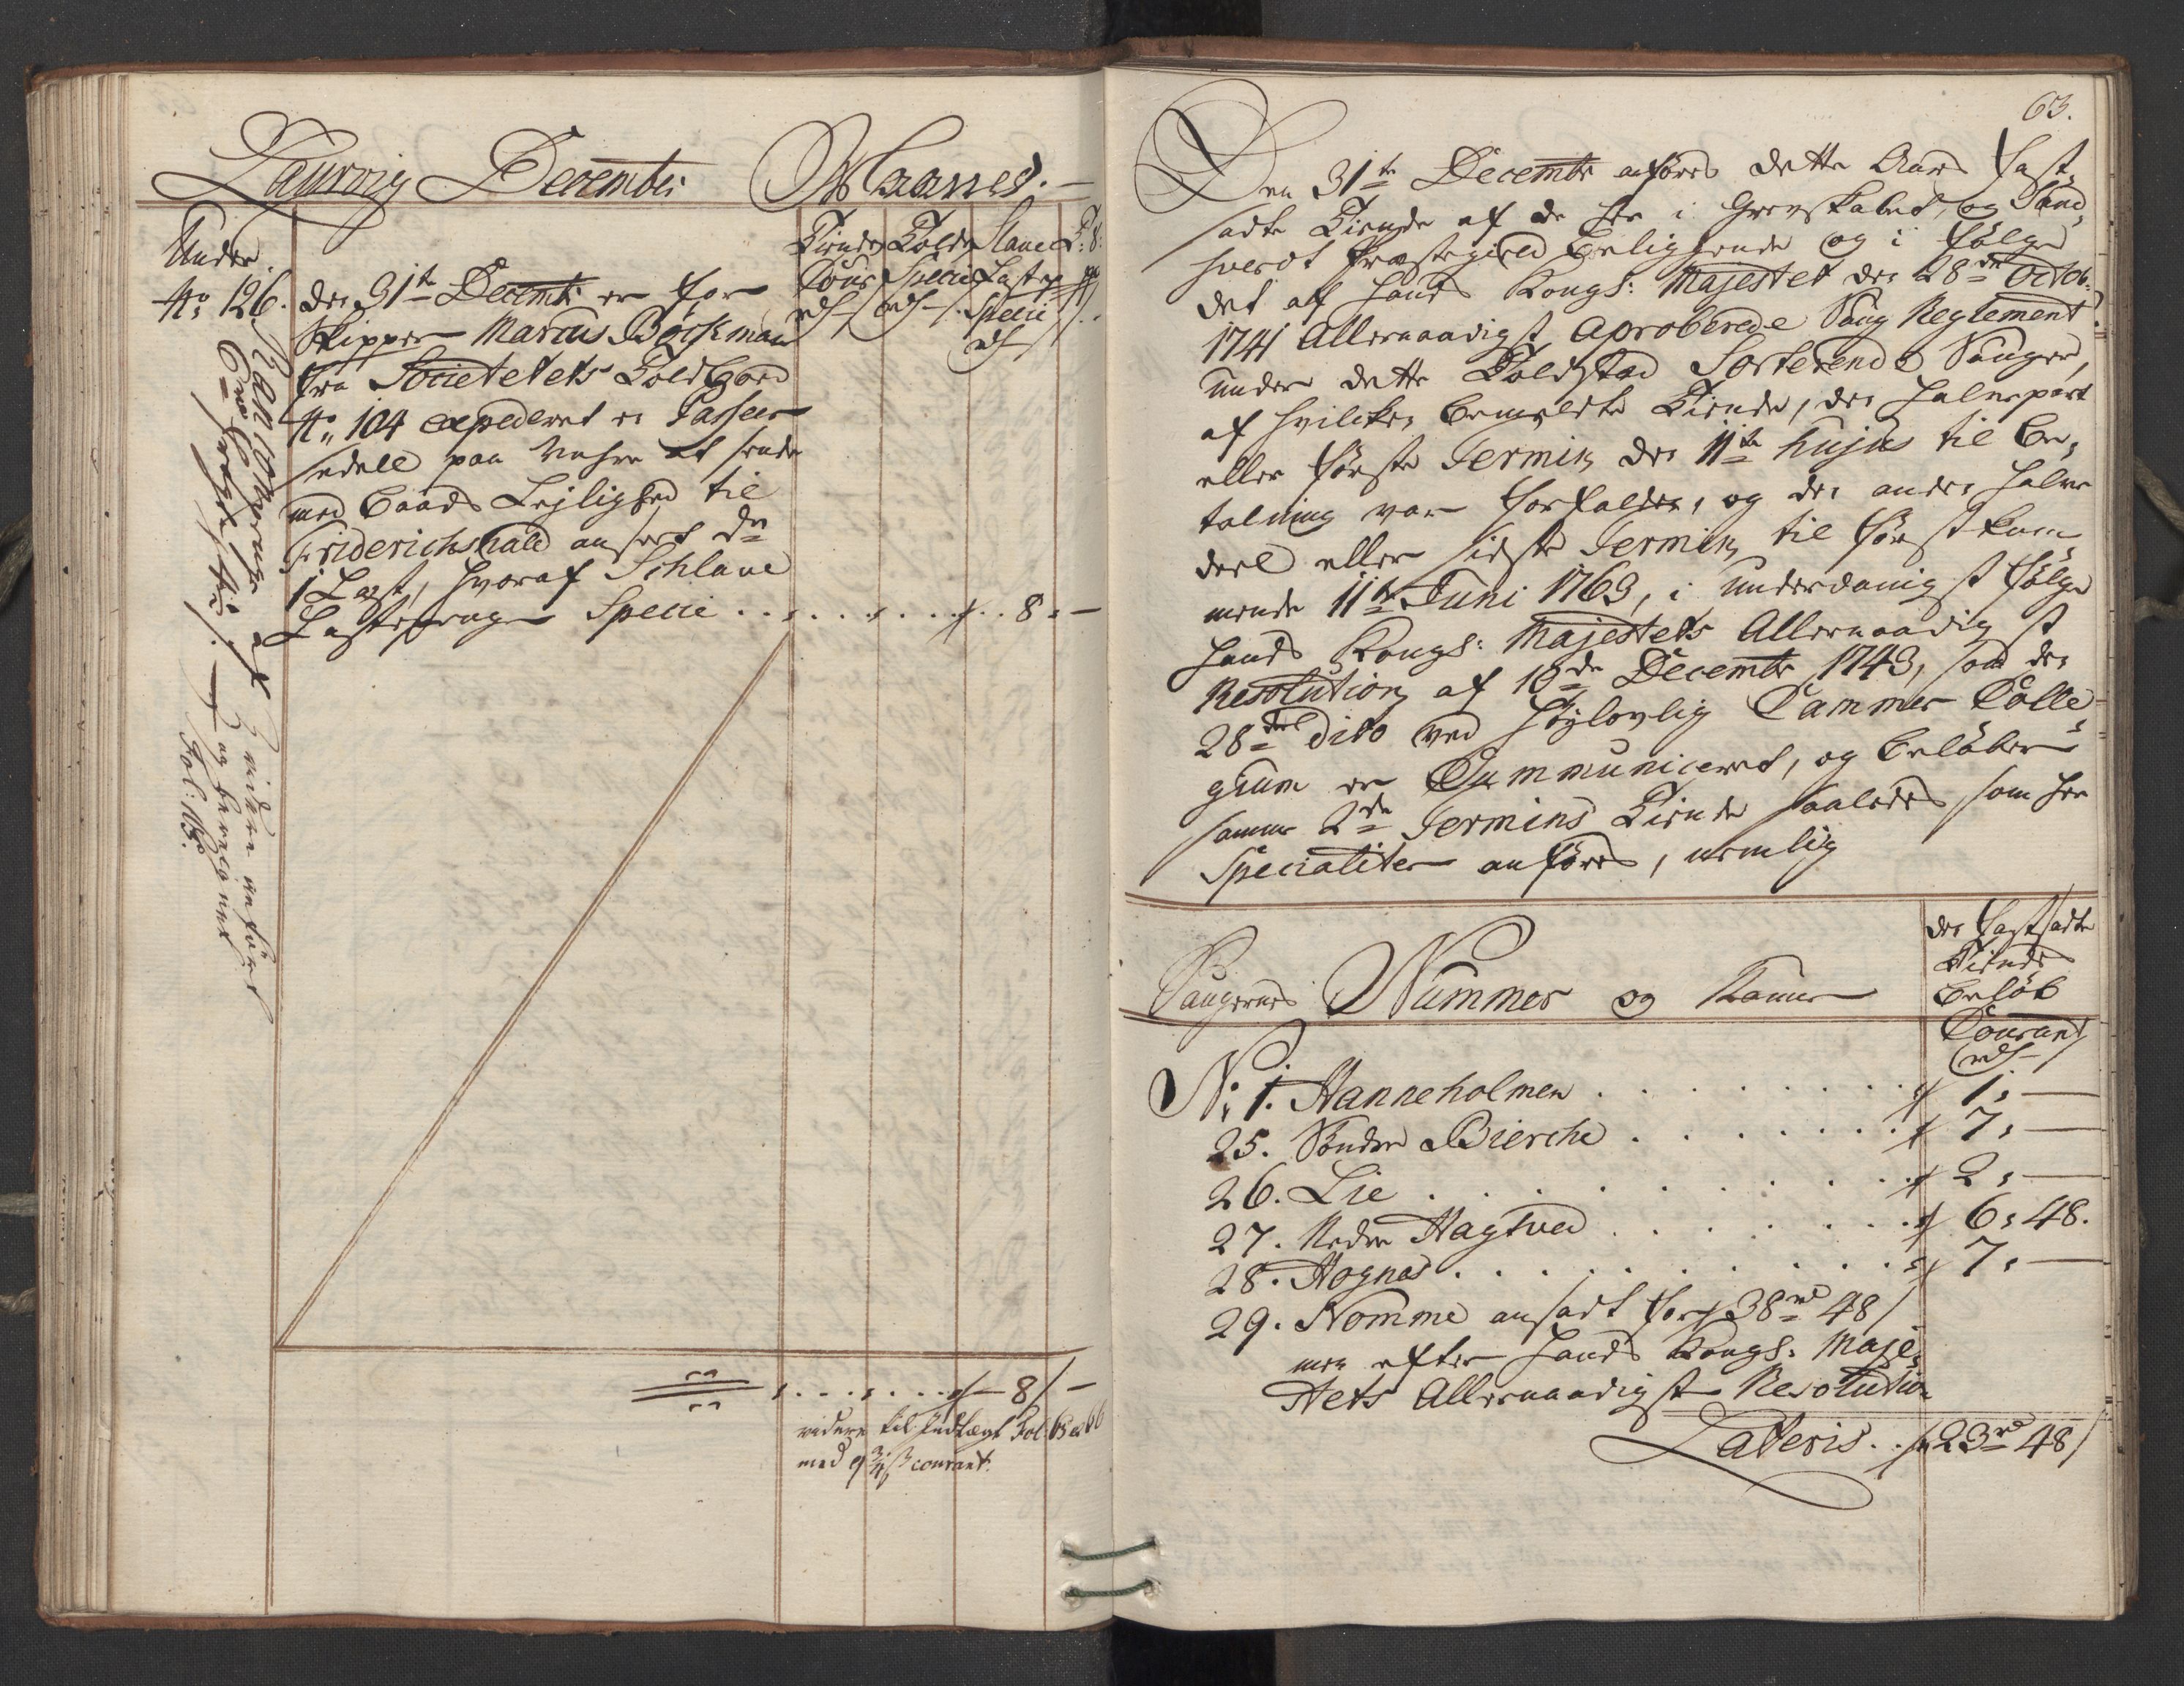 Laurvig Decembr: Maaned.
Tiende Cour rd
Told Specie rd
Slave Laste p Specie rd
Under
No 126. Den 31te Decembr: er for
Skipper Marcus Böckman
fra Societetets Toldboed
No 104 expederet en Passeer
sedell paa
med Baads Lejlighed til
Friderichshald ansat dr
1 Læst, hvoraf Schlave
Lastepenge Specie 8
8
videre til Indtægt Fol: 65 et 66
med 9 3/4 s courant.
videre anført
og beregnet
Fol: 65.
63.
Den 31te Decembr anføres dette Aars fast,
sadte Tiende af de her i Grevskabet, og Sand,
hverdt Præstegield beliggende og i følge
det af Hands Kongs: Majestet den 28de Octob:
1741 Allernaadigst Aproberede Saug Reglement
under dette Toldsted Sorterende Sauger,
af hvilken bemeldte Tiende, den halve part
eller første Termin den 11te hujus til be,
talning var forfalden, og den anden halve
deel eller sidste Termin til först kom,
mende 11te Juni 1763, i underdanigst følge
Hands Kongs: Majestets Allernaadigst
Resolution af 10de Decembr 1743, som den
28de dito ved Höylovlig Cammer Colle,
gium er Communiceret, og beløber
samme 2de Termins Tiende saaledes som her
Specialiter anføres, nemlig
Saugernes Nummer og Namne
den fastsadte
Tiende
beløb
Courant
rd
No 1. Hanneholmen 1, —
25. Søndre Bierche 7, —
26. Lie 2, —
27. Nedre Hagtved 6, 48.
28. Hognes 7, —
29. Homme ansadt for 38 rd 48
men efter Hands Kongs: Maje,
stets Allernaadigst Resolution
Lateris 23 rd 48